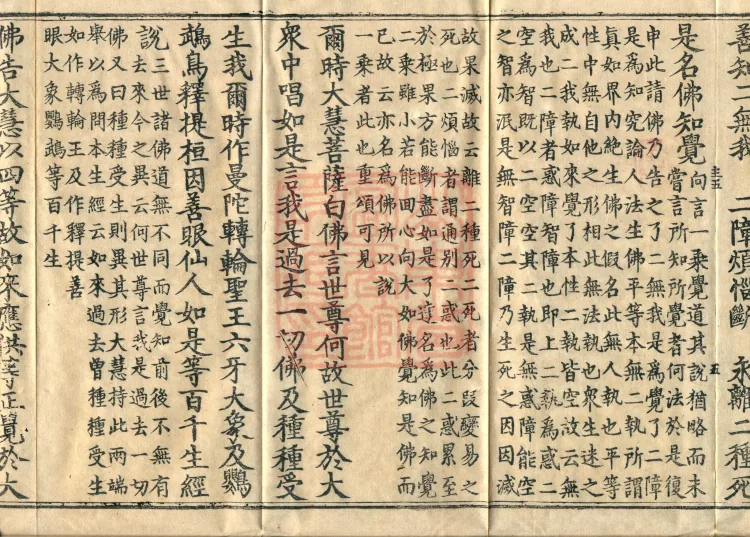 善知二無我 二障煩惱斷 永離二種死
是名佛知覺
向言一乘覺道其說猶略而未
嘗言所知所覺者何法於是復
申此請佛乃告之了二無我是為覺了二障
是為知究論人法生佛平等本無二執所謂
真如界內絕生佛之假名此無人執也平等
性中無自他之形相此無法執也眾生迷之
成二我執如來覺了本性二執皆空故云無
我也二障者惑障智障也即上二執為惑二
空為智既以二空空其二執是無惑障能空
之智亦泯是無智障二障乃生死之因因滅
故果滅故云離二種死二死者分段變易之
死也二煩惱者謂通別二惑也此二惑累至
於極果方能斷盡如是了達名為佛之知覺
二乘雖小若能回心向大如佛覺知是佛而
已故云亦名為佛所以說
一乘者此也重頌可見
爾時大慧菩薩白佛言世尊何故世尊於大
眾中唱如是言我是過去一切佛及種種受
生我爾時作曼陀轉輪聖王六牙大象及鸚
鵡鳥釋提桓因善眼仙人如是等百千生經
說三世諸佛道無不同而覺知前後不無有
去來今之異云何世尊言我是過去一切
佛又曰種種受生則異其形大慧持此兩端
舉以為問本生經云如來過去曾種種受生
如作轉輪王及作釋提善
眼大象鸚鵡等百千生
佛告大慧以四等故如來應供等正覺於大